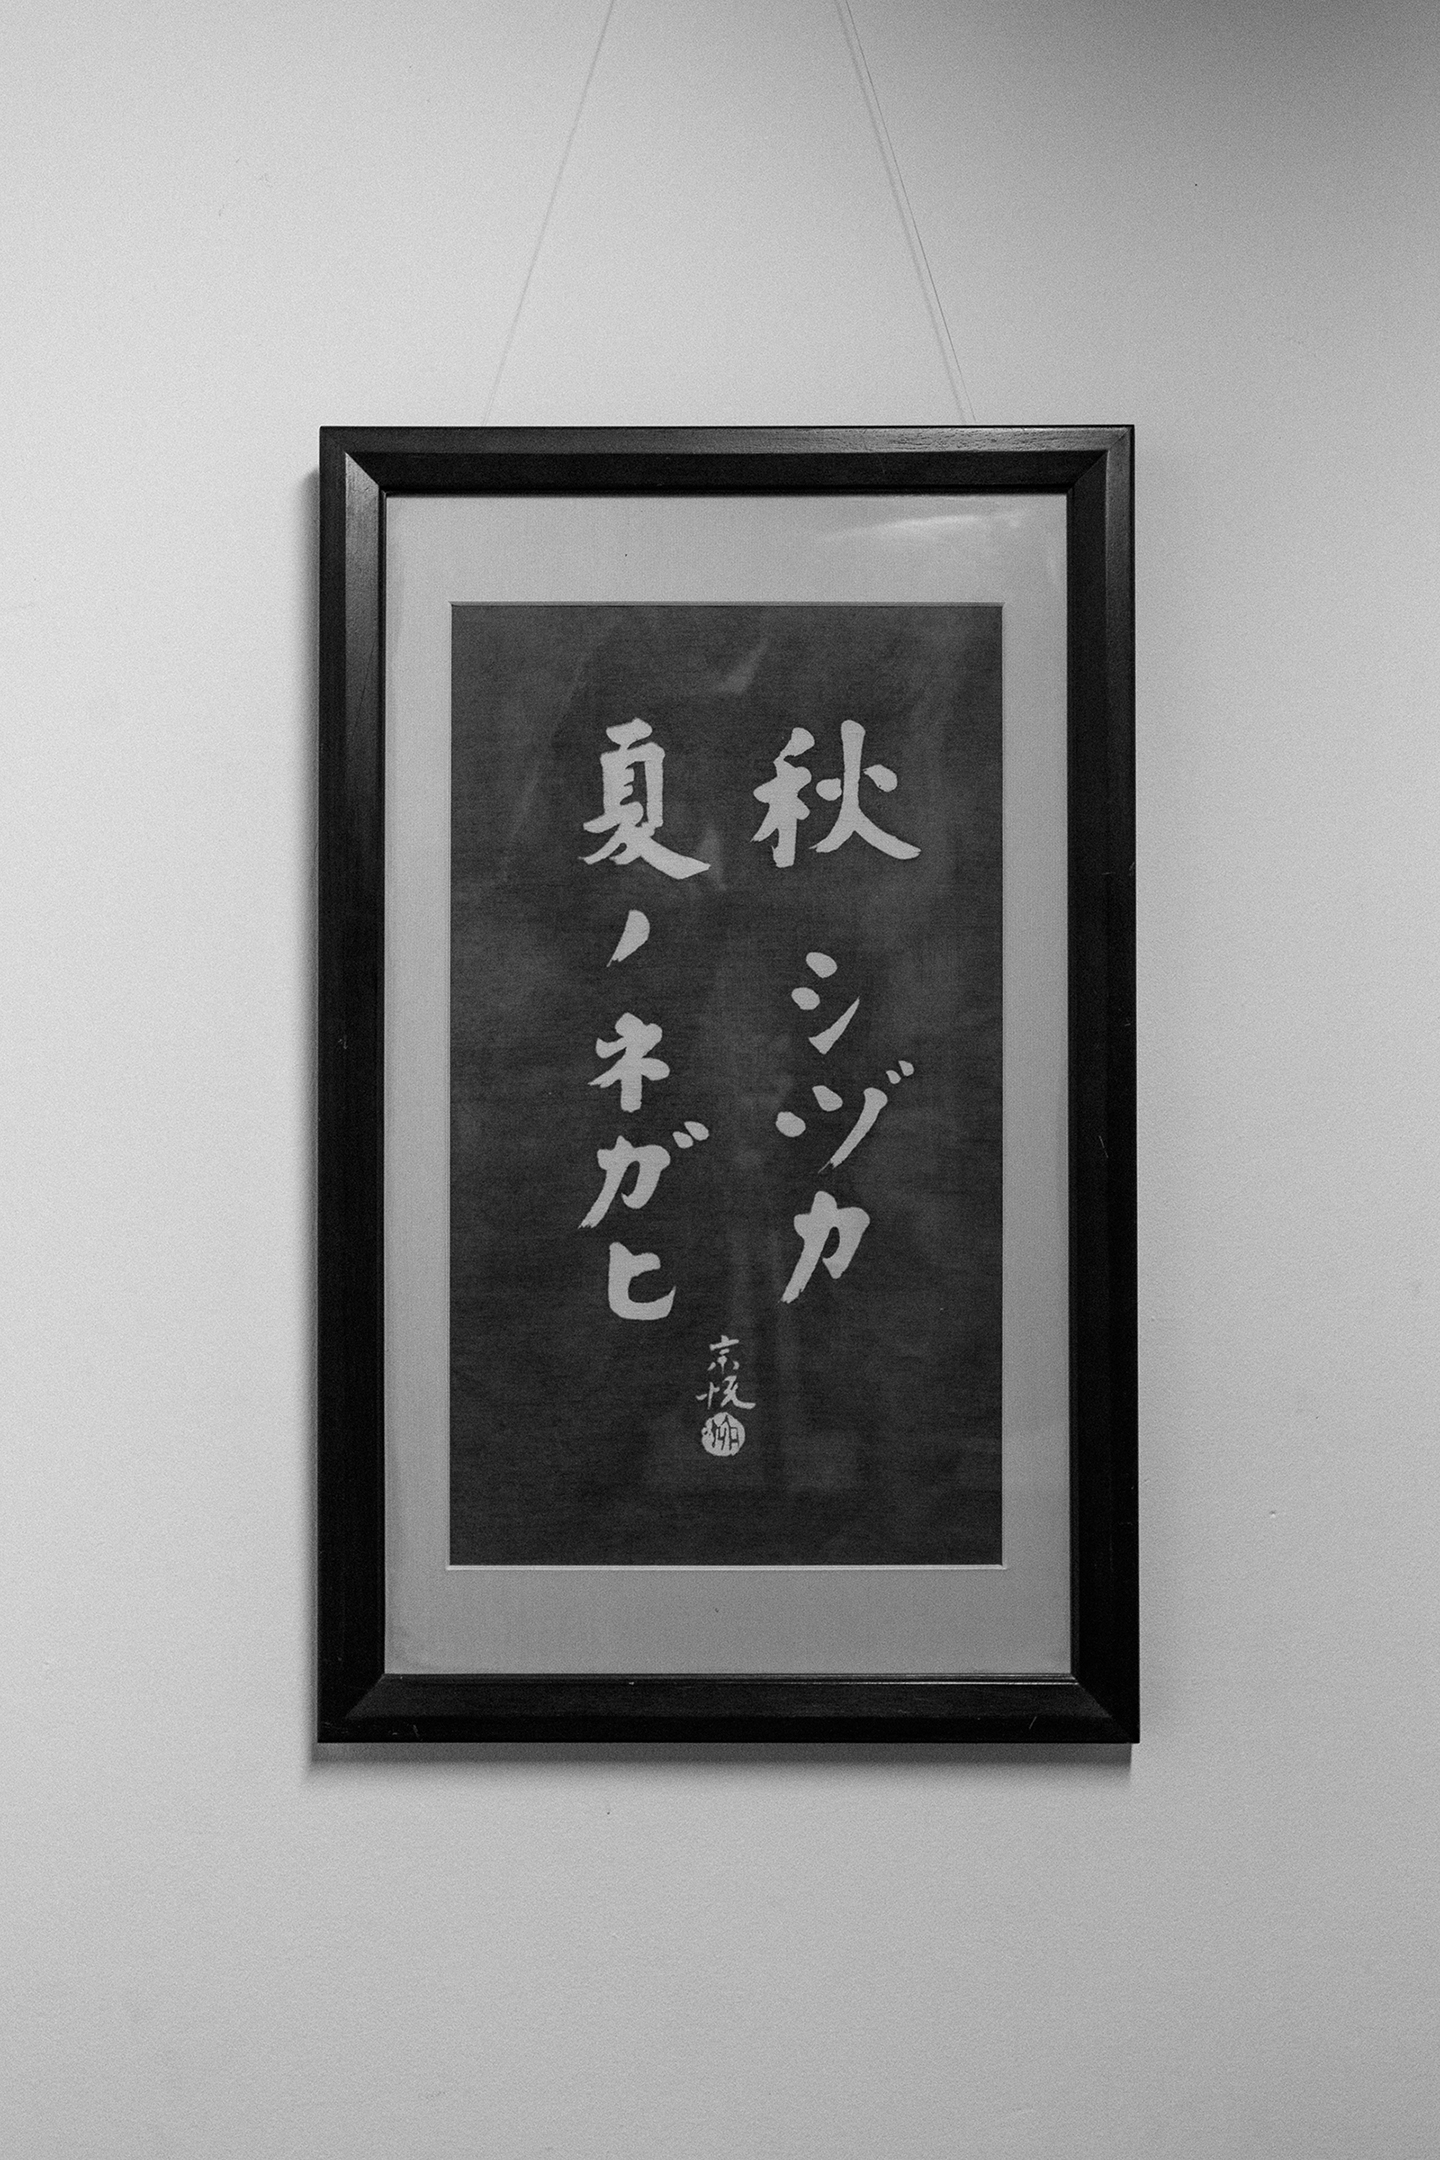 秋シヅカ
夏ノネガヒ
宗悦